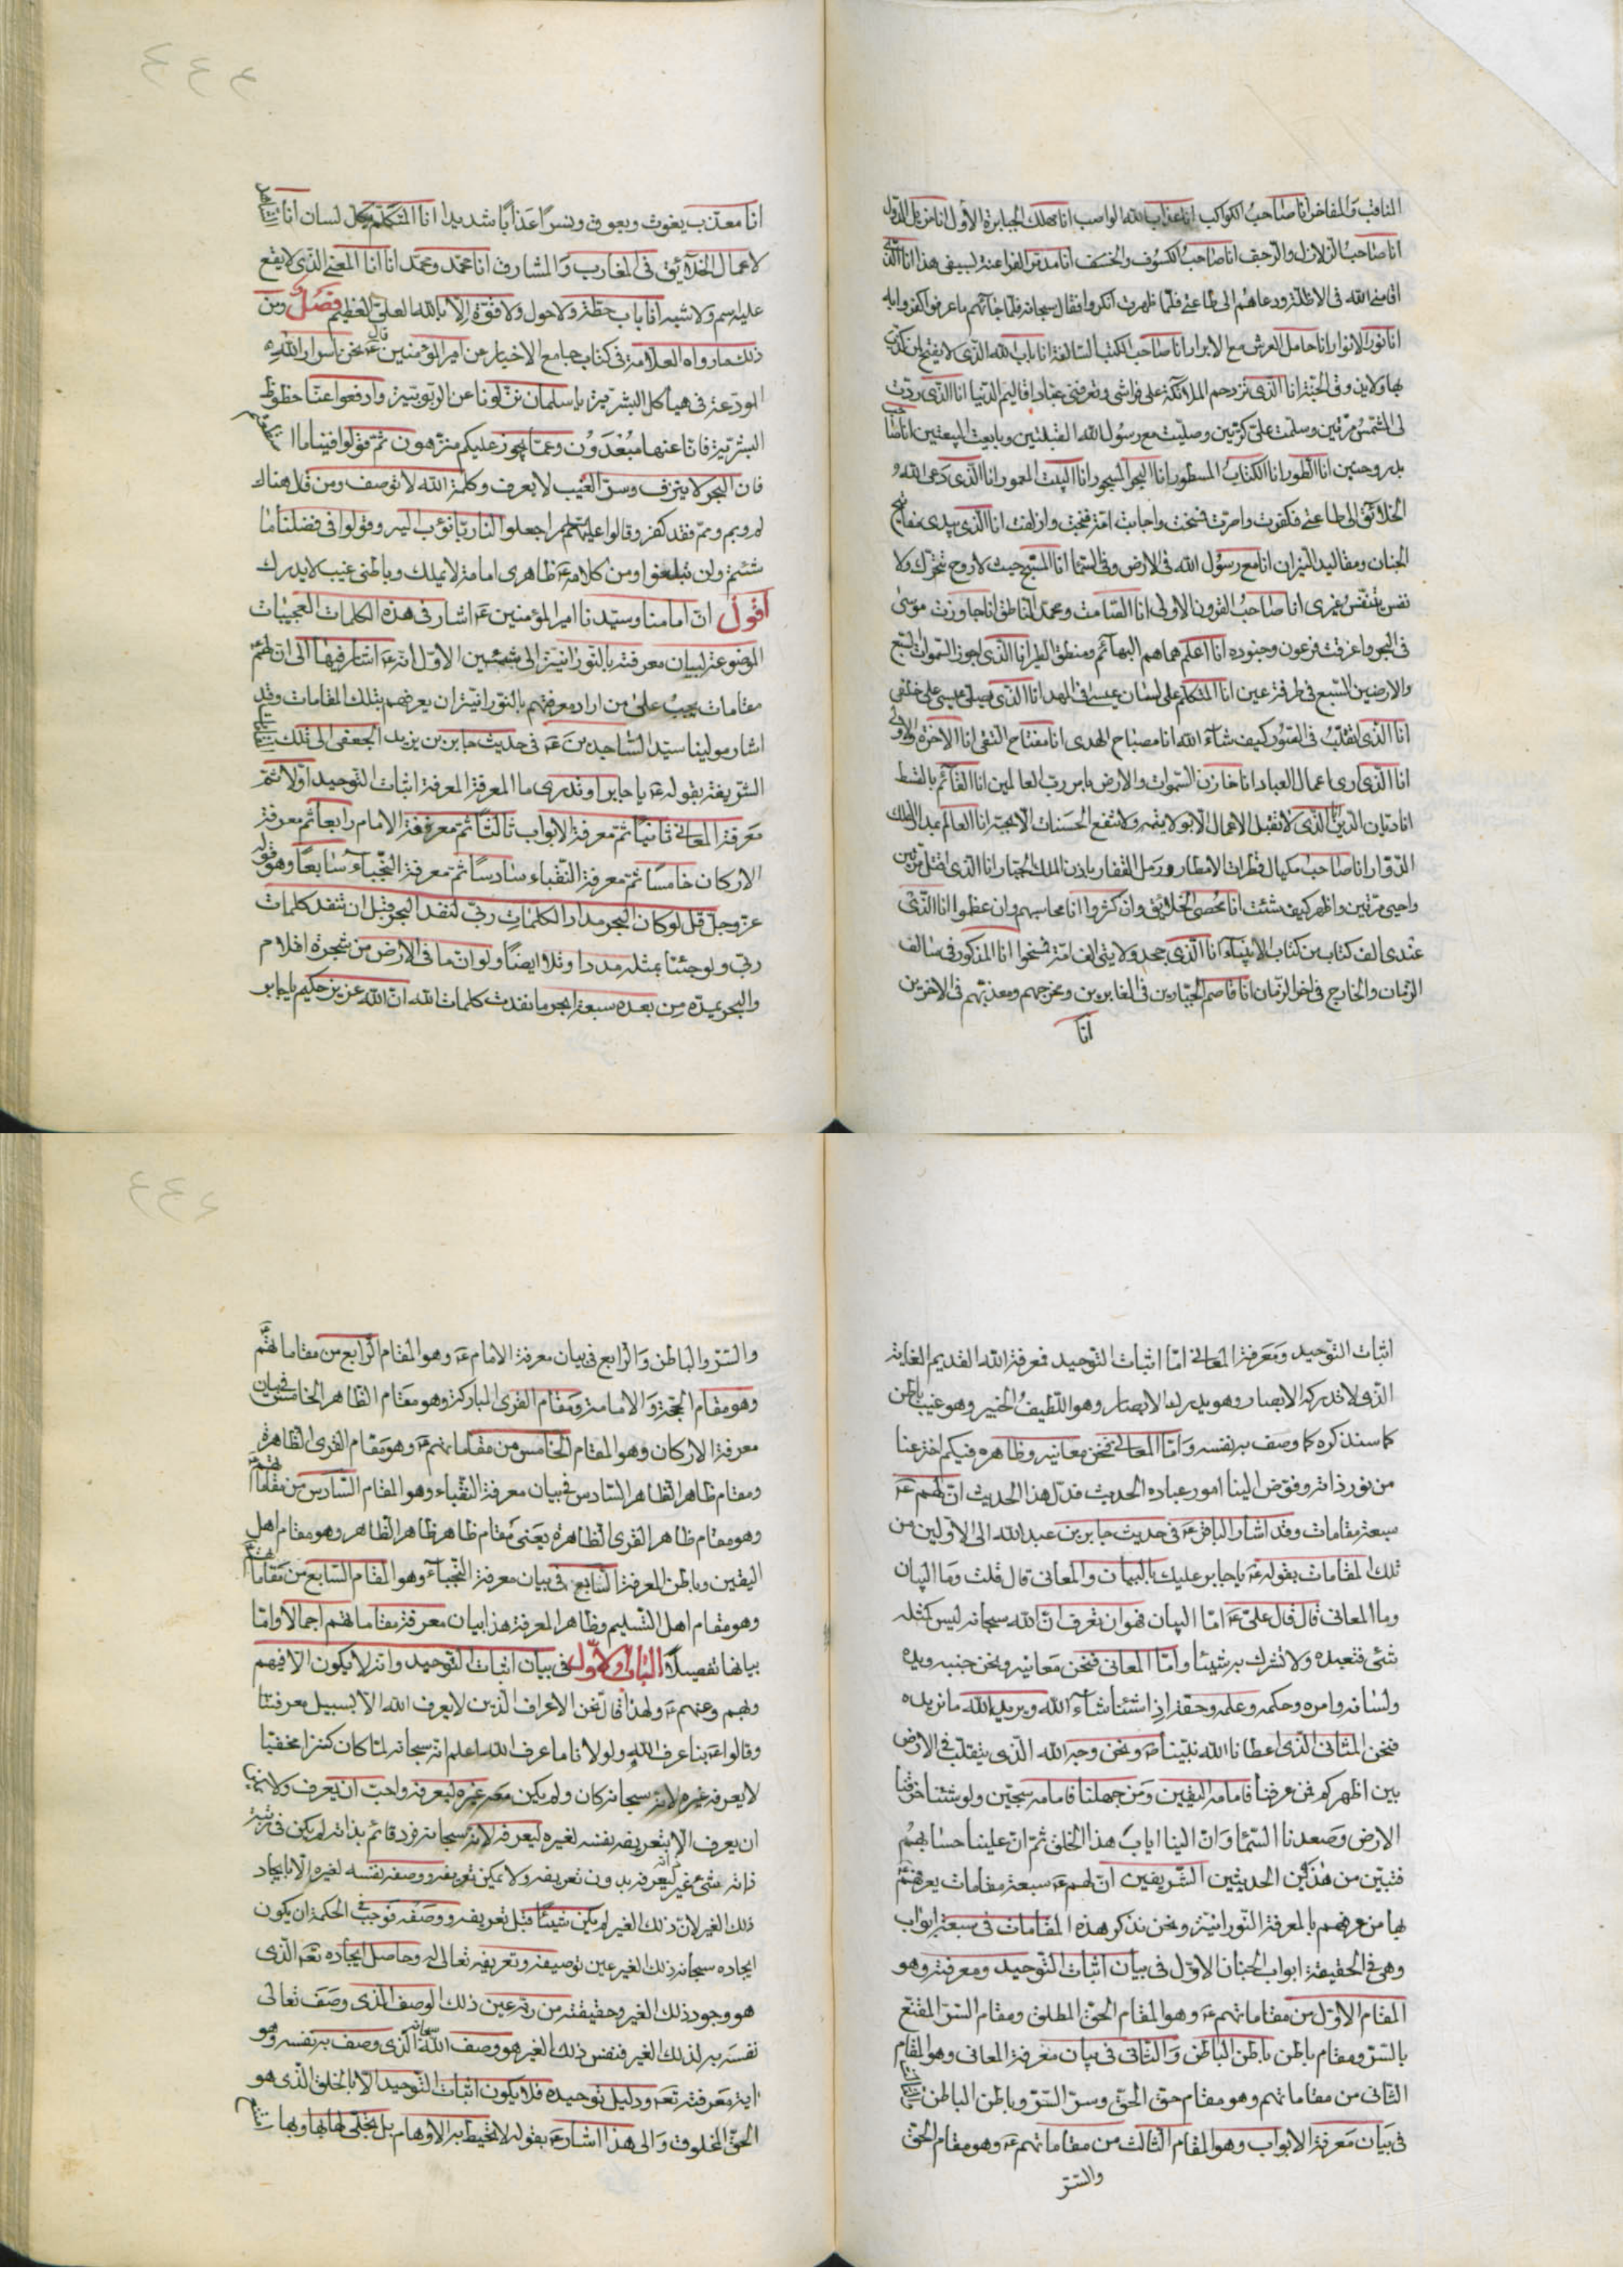 المناقب والمفاخر انا صاحب الكواكب انا عذاب الله الواصب انا مهلك الجبابرة الاول انا مزيل الدول
انا صاحب الزلازل والرجف انا صاحب الكسوف والخسوف انا مدمر الفراعنة بسيفي هذا انا الذي
اقامني الله في الاظلة ودعاهم الى طاعتي فلما ظهرت انكروا فقال سبحانه فلما جائهم ما عرفوا كفروا به
انا نور الانوار انا حامل العرش مع الابرار انا صاحب الكتب السالفة انا باب الله الذي لا يفتح لمن كذب
بها ولا يذوق الجنة انا الذي تزدحم الملائكة على فراشي وتعرفني عباد اقاليم الدنيا انا الذي ردت
لي الشمس مرتين وسلمت علي كرتين وصليت مع رسول الله القبلتين وبايعت البيعتين انا صاحب
بدر وحنين انا الطور انا الكتاب المسطور انا البحر المسجور انا البيت المعمور انا الذي دعى الله
الخلائق الى طاعتي فكفرت واصرت فمسخت واجابت امة فنجت وازلفت انا الذي بيدي مفاتيح
الجنان ومقاليد النيران انا مع رسول الله في الارض وفي السما انا المسيح حيث لا روح تتحرك ولا
نفس تتنفس غيري انا صاحب القرون الاولى انا الصامت ومحمد الناطق انا جاوزت موسى
في البحر واغرقت فرعون وجنوده انا اعلم هماهم البهائم ومنطق الطير انا الذي اجوز السموات السبع
والارضين السبع في طرفة عين انا المتكلم على لسان عيسى في المهد انا الذي يصلي عيسى على خلفي
انا الذي اتقلب في الصور كيف شاء الله انا مصباح الهدى انا مفتاح التقى انا الاخرة والاولى
انا الذي ارى اعمال العباد انا خازن السموات والارض بامر رب العالمين انا القائم بالقسط
انا ديان الدين انا الذي لا تقبل الاعمال الا بولايته ولا تنفع الحسنات الا بحبه انا العالم بمدار الفلك
الدوار انا صاحب مكيال قطرات الامطار ورمل القفار باذن الملك الجبار انا الذي اقتل مرتين
واحيى مرتين واظهر كيف شئت انا محصي الخلائق وان كثروا انا محاسبهم وان عظموا انا الذي
عندي الف كتاب من كتاب الانبياء انا الذي جحد ولايتي الف امة فمسخوا انا المذكور في سالف
الزمان والخارج في اخر الزمان انا قاصم الجبارين في الغابرين ومخرجهم ومعذبهم في الاخرين
انا
٤٤٤
انا معذب يغوث ويعوق ونسرا عذابا شديدا انا المتكلم بكل لسان انا الشاهد
لاعمال الخلائق في المغارب والمشارق انا محمد ومحمد انا انا المعنى الذي لا يقع
عليه اسم ولا شبه انا باب حطة ولا حول ولا قوة الا بالله العلي العظيم فصل ومن
ذلك ما رواه العلامة في كتاب جامع الاخبار عن امير المؤمنين ع قال نحن اسرار الله
المودعة في هياكل البشرية يا سلمان نزلونا عن الربوبية وادفعوا عنا حظوظ
البشرية فانا عنها مبعدون وعما يجوز عليكم منزهون ثم قولوا فينا ما استطعتم
فان البحر لا ينزف وسر الغيب لا يعرف وكلمة الله لا توصف ومن قال هناك
لم وبم ومم فقد كفر وقالوا عليهم اجعلوا لنا ربا نؤب اليه وقولوا في فضلنا ما
شئتم ولن تبلغوا ومن كلامه ع ظاهري امامة لا يملك وباطني غيب لا يدرك
اقول ان امامنا وسيدنا امير المؤمنين ع اشار في هذه الكلمات العجيبات
الموضوعة لبيان معرفته بالنورانية الى الاول انه ع اشار فيها الى ان لهم
مقامات يجب على من اراد معرفتهم بالنورانية ان يعرفهم بتلك المقامات وقد
اشار مولينا سيد الساجدين ع في حديث جابر بن يزيد الجعفي الى تلك
الشريفة بقوله ع يا جابر اوتدري ما المعرفة المعرفة اثبات التوحيد اولا ثم
معرفة المعاني ثانيا ثم معرفة الابواب ثالثا ثم معرفة الامام رابعا ثم معرفة
الاركان خامسا ثم معرفة النقباء سادسا ثم معرفة النجباء سابعا وهو قوله
عز وجل قل لو كان البحر مدادا لكلمات ربي لنفد البحر قبل ان تنفد كلمات
ربي ولو جئنا بمثله مددا وتلا ايضا ولو ان ما في الارض من شجرة اقلام
والبحر يمده من بعده سبعة ابحر ما نفدت كلمات الله ان الله عزيز حكيم يا جابر
اثبات التوحيد ومعرفة المعاني اما اثبات التوحيد فمعرفة الله القديم الغاية
الذي لا تدركه الابصار وهو يدرك الابصار وهو اللطيف الخبير وهو غيب باطن
كما سنذكره كما وصف به نفسه واما المعاني فنحن معانيه وظاهره فيكم اخترعنا
من نور ذاته وفوض الينا امور عباده الحديث فدل هذا الحديث ان لهم ع
سبعة مقامات وقد اشار الباقر ع في حديث جابر بن عبد الله الى الاولين من
تلك المقامات بقوله ع يا جابر عليك بالبيان والمعاني قال قلت وما البيان
وما المعاني قال قال علي ع اما البيان فهو ان تعرف ان الله سبحانه ليس كمثله
شئ فتعبده ولا تشرك به شيئا واما المعاني فنحن معانيه ونحن جنبه ويده
ولسانه وامره وحكمه وعلمه وحقه اذا شئنا شاء الله ويريد الله ما نريده
فنحن المثاني الذي اعطانا الله نبينا ص ونحن وجه الله الذي يتقلب في الارض
بين اظهركم فمن عرفنا فامامه اليقين ومن جهلنا فامامه سجين ولو شئنا خرقنا
الارض وصعدنا السما وان الينا اياب هذا الخلق ثم ان علينا حسابهم
فتبين من هذين الحديثين الشريفين ان لهم ع سبعة مقامات يعرفهم
بها من عرفهم بالمعرفة النورانية ونحن نذكر هذه المقامات في سبعة ابواب
وهي في الحقيقة ابواب الجنان الاول في بيان اثبات التوحيد ومعرفته وهو
المقام الاول من مقاماتهم ع وهو المقام الحق المطلق ومقام السر المقنع
بالسر ومقام باطن باطن الباطن والثاني في بيان معرفة المعاني وهو المقام
الثاني من مقاماتهم وهو مقام حق الحق وسر السر وباطن الباطن
في بيان معرفة الابواب وهو المقام الثالث من مقاماتهم ع وهو مقام الحق
والسر
٤٤٤
والسر والباطن والرابع في بيان معرفة الامام ع وهو المقام الرابع من مقاماتهم
وهو مقام الحجة والامامة ومقام القرى المباركة وهو مقام الظاهر الخامس في بيان
معرفة الاركان وهو المقام الخامس من مقاماتهم ع وهو مقام القرى الظاهرة
ومقام ظاهر الظاهر السادس في بيان معرفة النقباء وهو المقام السادس من مقاماتهم
وهو مقام ظاهر القرى الظاهرة يعني مقام ظاهر ظاهر الظاهر وهو مقام اهل
اليقين وباطن المعرفة السابع في بيان معرفة النجباء وهو المقام السابع من مقاماتهم
وهو مقام اهل التسليم وظاهر المعرفة هذا بيان معرفة مقاماتهم اجمالا واما
بيانها تفصيلا الباب الاول في بيان اثبات التوحيد وانه لا يكون الا فيهم
وبهم وعنهم ع ولهذا قال نحن الاعراف الذين لا يعرف الله الا بسبيل معرفتنا
وقالوا ع بنا عرف الله ولولانا ما عرف الله اعلم انه سبحانه لما كان كنزا مخفيا
لا يعرفه غيره لانه سبحانه كان ولم يكن معه غيره ليعرفه واحب ان يعرف ولا يمكن
ان يعرف الا بتعريفه نفسه لغيره ليعرفه لانه سبحانه فرد قائم بذاته لم يكن في رتبة
ذاته شئ غيره ليعرفه بدون تعريفه ولا يمكن تعريفه ووصفه نفسه لغيره الا بايجاد
ذلك الغير لان ذلك الغير لم يكن شيئا قبل تعريفه ووصفه فوجب في الحكمة ان يكون
ايجاده سبحانه ذلك الغير عين توصيفه وتعريفه تعالى له وحاصل ايجاده تعه الذي
هو وجود ذلك الغير وحقيقته من ربه عين ذلك الوصف الذي وصف تعالى
نفسه به لذلك الغير فنفس ذلك الغير هو وصف الله سبحانه الذي وصف به نفسه وهو
اية معرفته تعه ودليل توحيده فلا يكون اثبات التوحيد الا بالخلق الذي هو
الحق المخلوق والى هذا اشار ع بقوله لا تحيط به الاوهام بل تجلى لها بها وبها